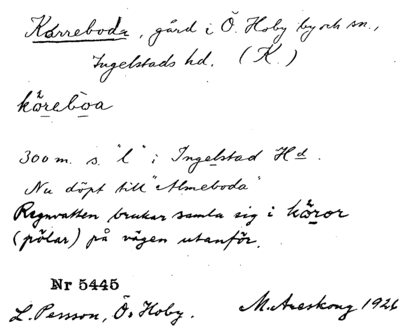 Kärreboda, gård i Ö. Hoby by och sn.,
Ingelstads hd. (K.)
käreboa
300 m. s. "l" i Ingelstad Hd.
Nu döpt till "Almeboda"
Regnvatten brukar samla sig i käror
(pölar) på vägen utanför.
Nr 5445
L. Persson, Ö. Hoby. M. Areskoug 1926